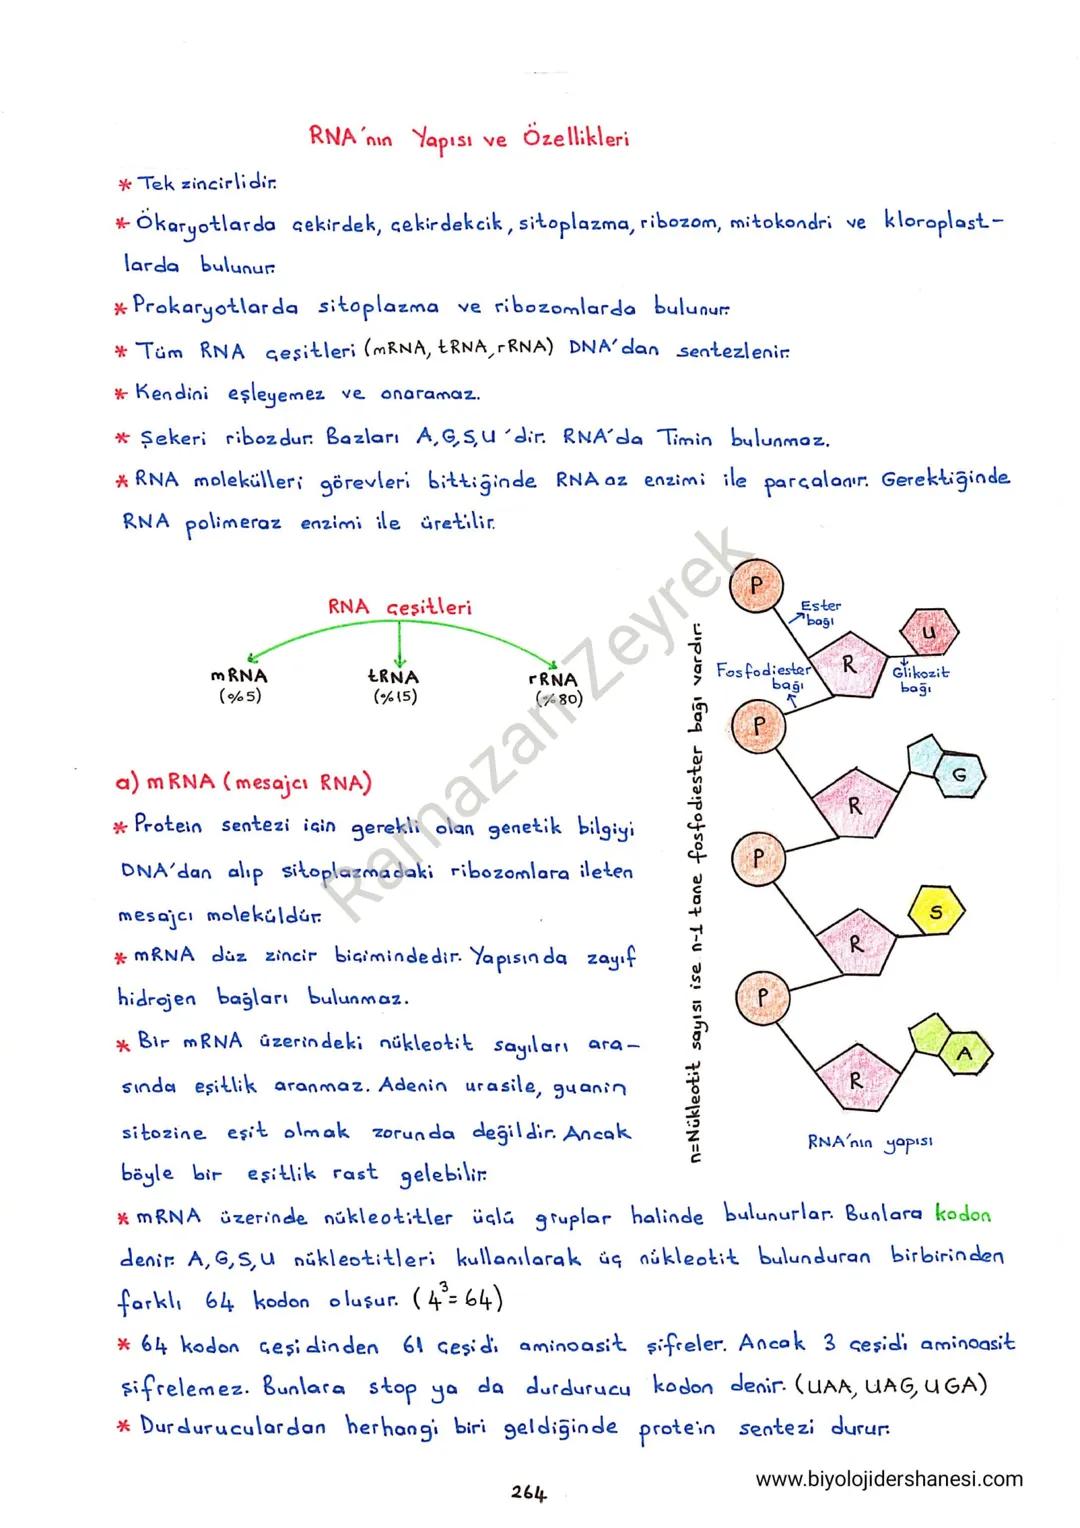 RNA'nın Yapısı ve Özellikleri
* Tek zincirlidir.
* Ökaryotlarda çekirdek, çekirdekcik, sitoplazma, ribozom, mitokondri ve kloroplast-
larda bulunur.
* Prokaryotlarda sitoplazma ve ribozomlarda bulunur.
* Tüm RNA çeşitleri (mRNA, tRNA, rRNA) DNA'dan sentezlenir.
* Kendini eşleyemez ve onaramaz.
* Şekeri ribozdur. Bazları A,G,S,U 'dir. RNA'da Timin bulunmaz.
* RNA molekülleri görevleri bittiğinde RNA az enzimi ile parçalanır. Gerektiğinde
RNA polimeraz enzimi ile üretilir.
RNA çeşitleri
mRNA
(%5)
tRNA
(%15)
rRNA
(%80)
a) mRNA (mesajcı RNA)
* Protein sentezi için gerekli olan genetik bilgiyi
DNA'dan alıp sitoplazmadaki ribozomlara ileten
mesajcı moleküldür.
* mRNA düz zincir biçimindedir. Yapısında zayıf
hidrojen bağları bulunmaz.
* Bir mRNA üzerindeki nükleotit sayıları ara-
sında eşitlik aranmaz. Adenin urasile, guanin
sitozine eşit olmak zorunda değildir. Ancak
böyle bir eşitlik rast gelebilir.
n=Nükleotit sayısı ise n-1 tane fosfodiester bağı vardır.
P
Ester
bağı
U
R
Fosfodiester
bağı
Glikozit
bağı
P
G
R
P
S
R
P
A
R
RNA'nın yapısı
* mRNA üzerinde nükleotitler üçlü gruplar halinde bulunurlar. Bunlara kodon
denir. A,G,S,U nükleotitleri kullanılarak üç nükleotit bulunduran birbirinden
farklı 64 kodon oluşur. (4³=64)
* 64 kodon çeşidinden 61 çeşidi aminoasit şifreler. Ancak 3 çeşidi aminoasit
şifrelemez. Bunlara stop ya da durdurucu kodon denir. (UAA, UAG, UGA)
* Durduruculardan herhangi biri geldiğinde protein sentezi durur.
Ramazan Zeyrek
264
www.biyolojidershanesi.com